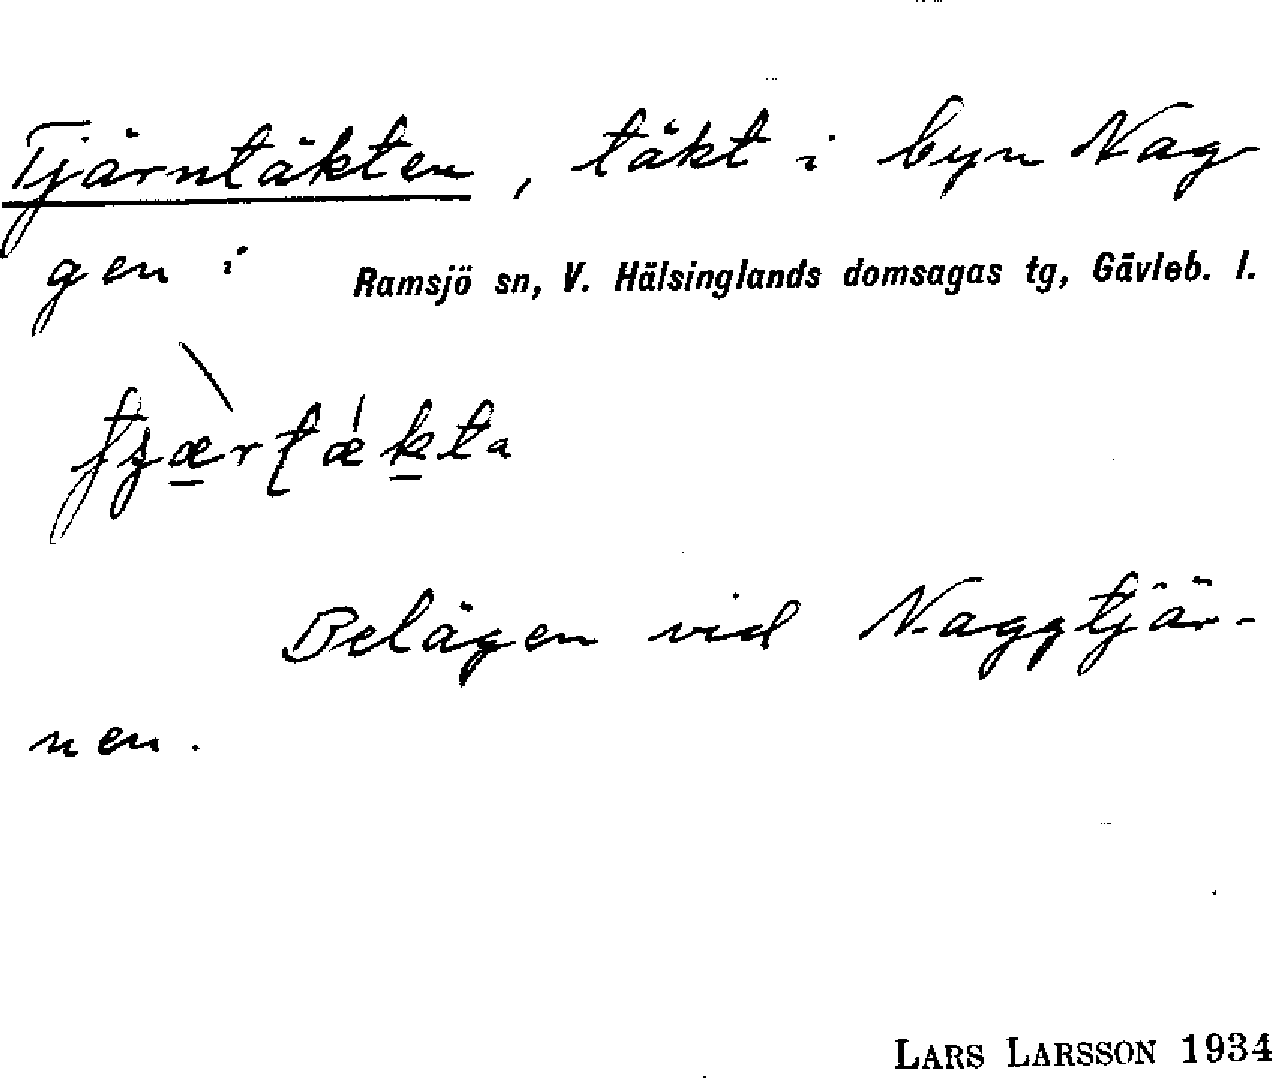 Tjärntäkten, täkt i byn Nag
gen i Ramsjö sn, V. Hälsinglands domsagas tg, Gävleb. l.
Belägen vid Naggtjär-
nen.
LARS LARSSON 1934